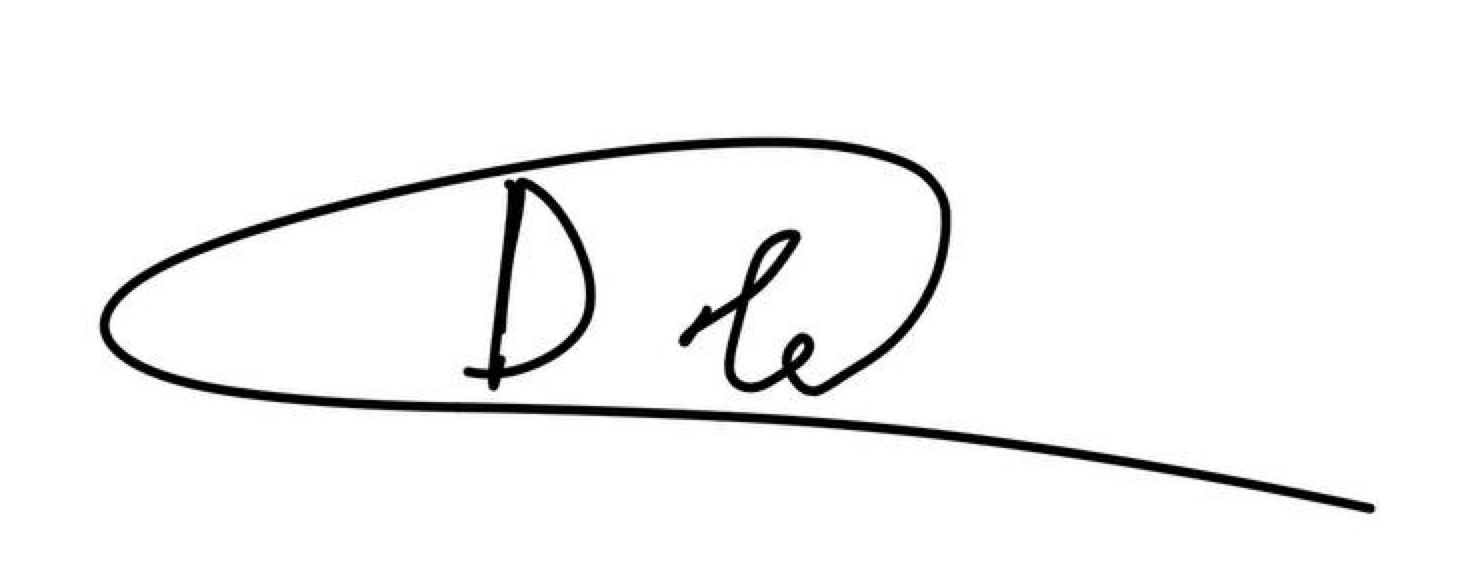 D le